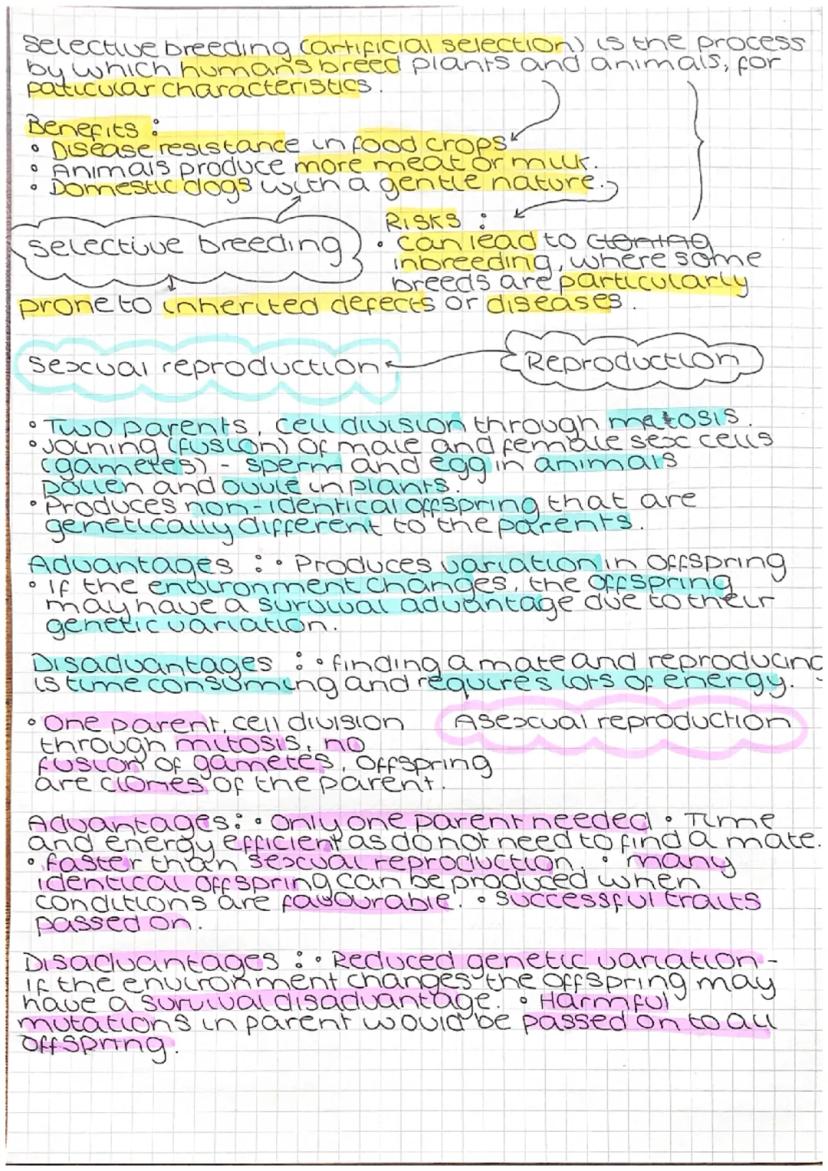 Selective breeding (artificial selection) is the process
by which humans breed plants and animals, for
paticular characteristics.
Benefits :
• Disease resistance in food crops
• Animals produce more meat or milk.
• Domestic dogs with a gentle nature.
Selective breeding
Risks :
• can lead to
inbreeding, where some
breeds are particularly
prone to inherited defects or diseases.
Sexual reproduction
Reproduction
• Two parents, cell division through metosis.
• Joining (fusion) of male and female sex cells
(gametes) - sperm and egg in animals
pollen and ovule in plants.
• Produces non-identical offspring that are
genetically different to the parents.
Advantages : • Produces variation in offspring
• If the environment changes, the offspring
may have a survival advantage due to their
genetic variation.
Disadvantages : • finding a mate and reproducing
is time consuming and requires lots of energy.
• One parent, cell division
through mitosis, no
fusion of gametes. Offspring
are clones of the parent.
Asexual reproduction
Advantages: • Only one parent needed • Time
and energy efficient as do not need to find a mate.
• faster than sexual reproduction. • many
identical offspring can be produced when
conditions are favourable. • Successful traits
passed on.
Disadvantages : • Reduced genetic variation -
if the environment changes the offspring may
have a survival disadvantage. • Harmful
mutations in parent would be passed on to all
offspring.